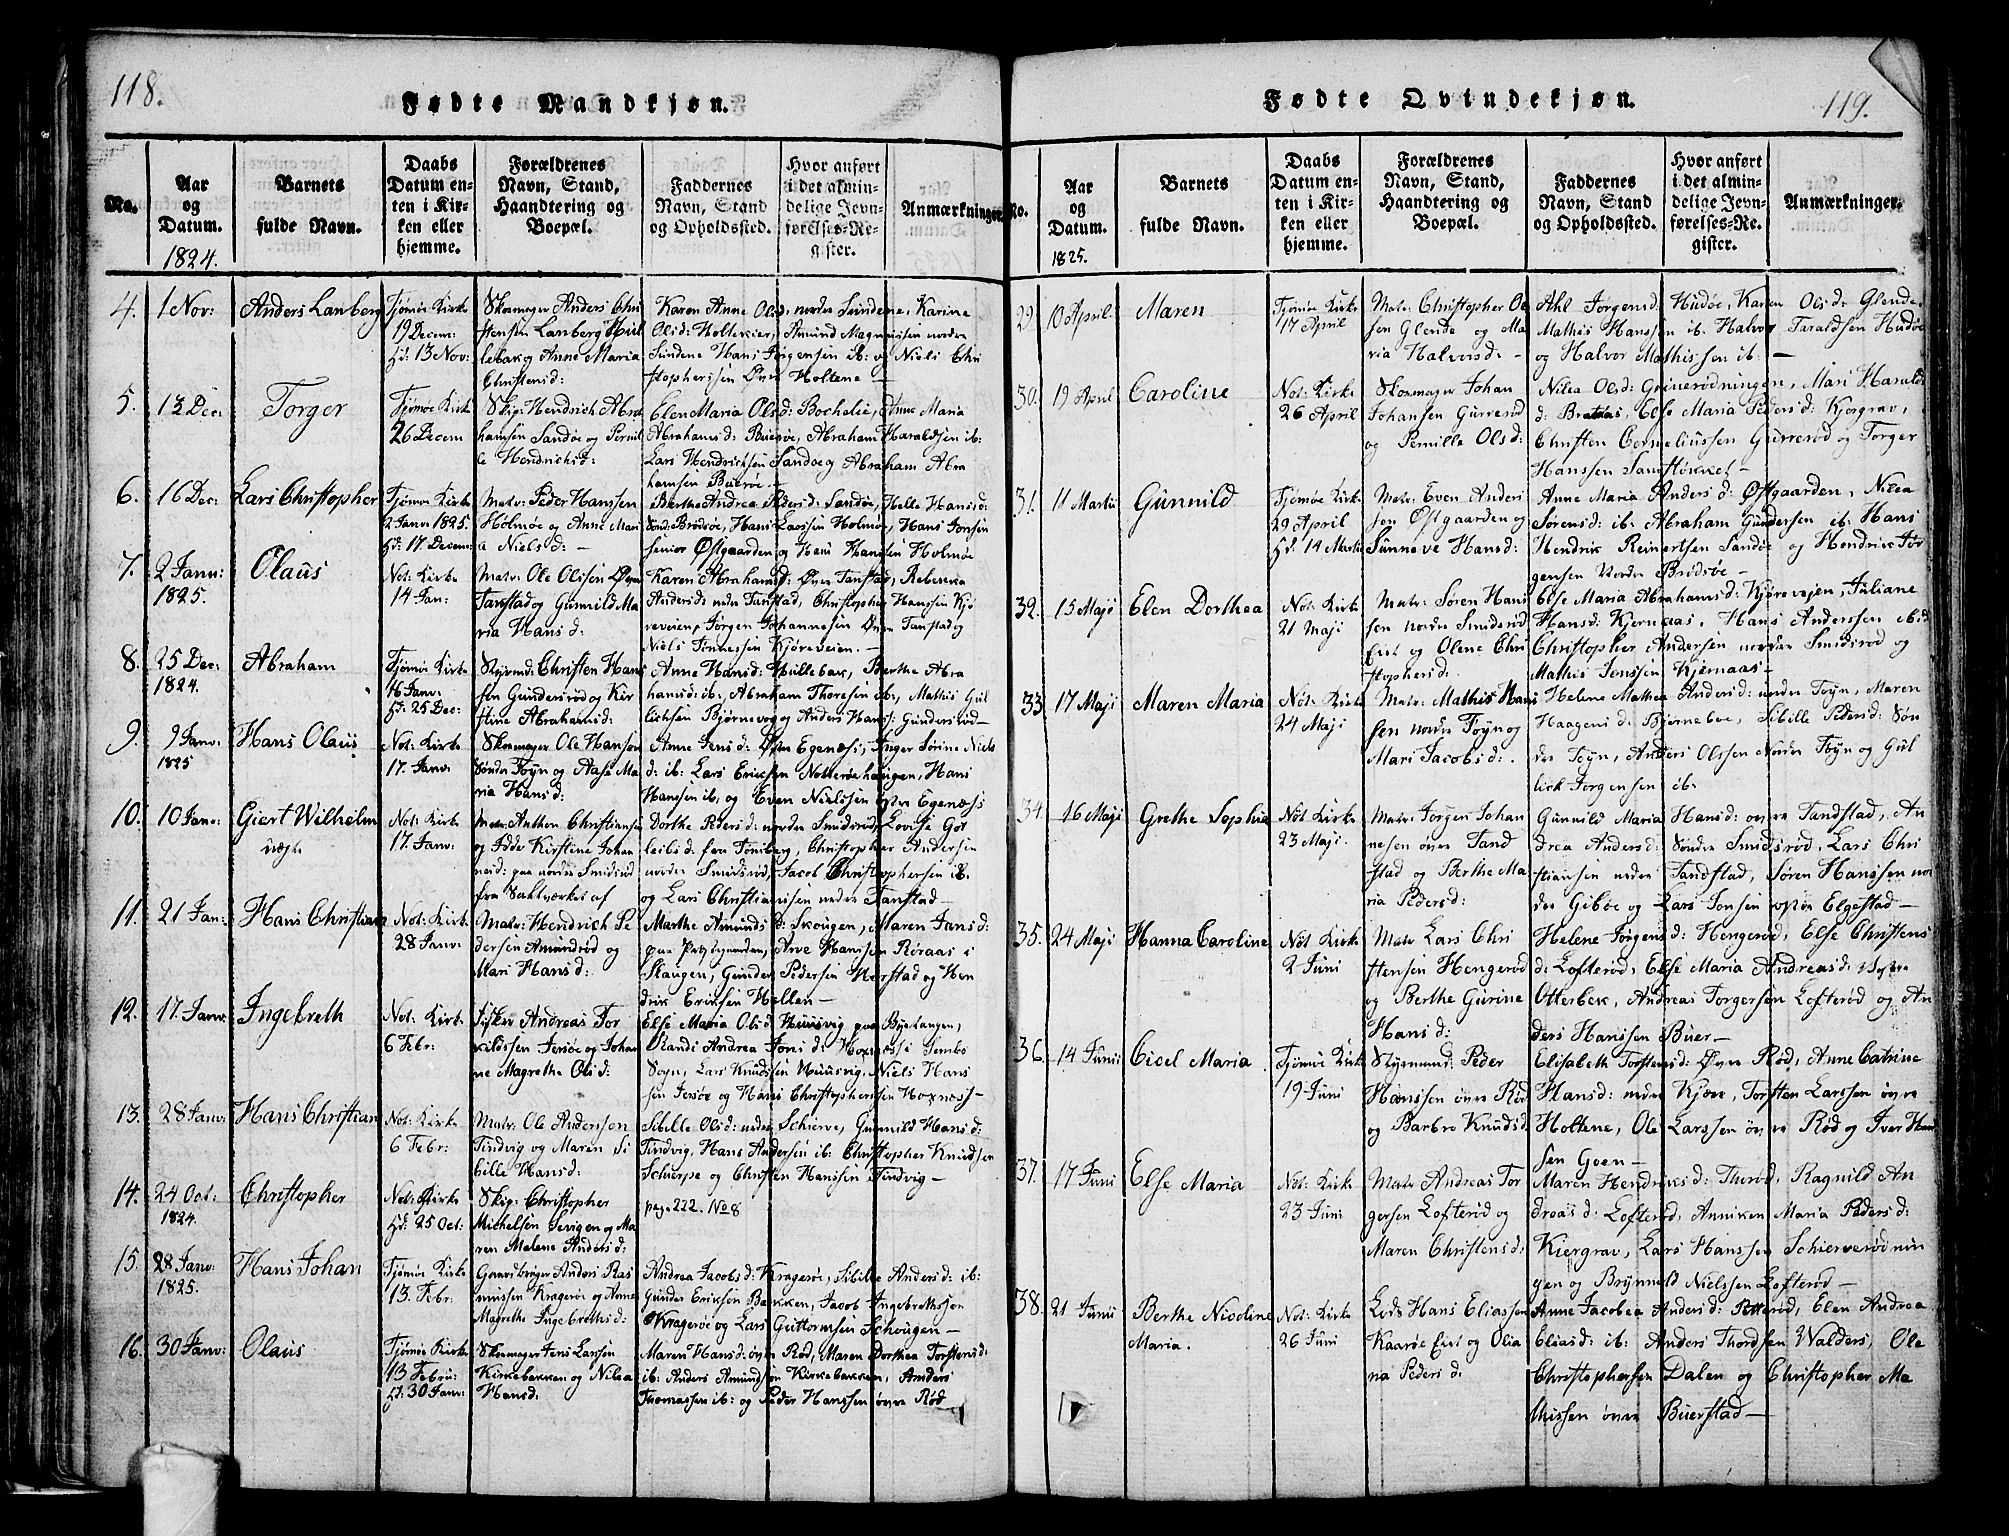 118.
Fødte Mandkjøn.
No.
Aar
og
Datum.
1824.
Barnets
fulde Navn.
Daabs
Datum en-
ten i Kir-
ken eller
hjemme.
Forældrenes
Navn, Stand,
Haandtering og
Boepæl.
Faddernes
Navn, Stand
og Opholdssted.
Hvor anført
i det almin-
delige Jevn-
førelses-Re-
gister.
Anmærkninger.
4. 1 Nov: Anders Lanberg
Tjømøe Kirke
19 Decem:
hd: 13 Nov:
Skomager Anders Chri
stensen Lanberg Hvil
lebak og Anne Maria
Christensd:
Karen Anne Olsd: nordre Sundene, Karine
Olsd: Holtekier, Amund Magnussen nordre
Sundene Hans Jørgensen ib: og Niels Chri
stophersen Øvre Holtene —
5. 13 Dec: Torger
Tjømøe Kirke
26 Decem
Skip: Hendrich Abra
hamsen Sandøe og Pernil
le Hendrichsd:
Elen Maria Olsd: Bochelie, Anne Maria
Abrahamsd: Buerøe, Abraham Haraldsen ib:
Lars Hendrichsen Sandøe og Abraham Abra
hamsen Buerøe —
6. 16 Dec: Lars Christopher
Tjømøe Kirke
2 Janv: 1825.
hd: 17 Decem:
Matr: Peder Hanssen
Holmøe og Anne Mari
a Nielsd: —
Berthe Andrea Pedersd: Sandøe, Helle Hansd:
Sønd: Brødsøe, Hans Larssen Holmøe, Hans Jonsen
senior Østgaarden og Hans Hanssen Holmøe
7. 2 Janv:
1825.
Olaus
Not: Kirke
14 Jan:
Matr: Ole Olssen Øvre
Tanstad og Gunnild Ma
ria Hansd:
Karen Abrahamsd: Øvre Tanstad, Rebecka
Andersd: nedre Tanstad, Christopher Hanssen Kjø
reveien, Jørgen Johannesen Øvre Tanstad og
Niels Tønnessen Kjøreveien. —
8. 25 Dec:
1824.
Abraham
Tjømøe Kirke
16 Janv:
hd: 25 Dec:
Styrmd: Christen Hans
sen Gundersrød og Kir
stine Abrahamsd:
Anne Hansd: Hvillebak, Berthe Abra
hamsd: ib:, Abraham Thoresen ib:, Mathis Gul
lichsen Bjørnevog og Anders Hanss: Gundersrød —
9. 9 Janv:
1825
Hans Olaus
Not: Kirke
17. Janv:
Skomager Ole Hansen
Søndre Føyn og Aase Ma
ria Hansd:
Anne Jensd: Øvre Egenæss, Inger Sørine Niels
d: ib: Lars Eriksen Notterøehaugen, Hans
Hanssen ib: og Even Nielssen øvre Egenæss
10. 10 Janv: Giert Wilhelm
uægte
Not: Kirke
17. Janv:
Matr: Anthon Christiansen
og Idde Kirstine Johan
nesd: paa nordre Smidsrød
fra Saltværket af
Dorthe Pedersd: nordre Smidsrød, Lovise Got
leibsd: fra Tønsberg, Christopher Andersen
nordre Smidsrød, Jacob Christophersen ib:
og Lars Christianssen nedre Tanstad —
11. 21 Jan: Hans Christian
Not: Kirke
28 Janv:
Matr: Hendrich Pe
dersen Amundrød og
Mari Hansd:
Marthe Amundsd: Skougen, Maren Jansd:
paa Præstegaarden, Arve Hanssen Røraas i
Skaugen, Gunder Pedersen Herstad og Hen
drik Eriksen Hellen —
12. 17. Janv: Ingebreth
Not: Kirke
6 Febr:
Fisker Andreas Tor
kildssen Jersøe og Johan
ne Magrethe Olsd:
Else Maria Olsd: Huusvig paa Byetangen,
Randi Andrea Jonsd: Hoxnæss i Sembs
Sogn, Lars Knudssen Huusvig, Niels Hans
sen Jersøe og Hans Christophersen Hoxnæss —
13. 28 Janv: Hans Christian
Not: Kirke
6 Febr:
Matr: Ole Andersen
Tindvig og Maren Si
bille Hansd:
Sibille Olsd: nedre Schierve, Gunnild Hansd:
Tindvig, Hans Andersen ib: Christopher Knudsen
Schierpe og Christen Hanssen Tindvig —
14. 24 Oct:
1824.
Christopher
Not: Kirke
hd: 25 Oct:
Skip: Christopher
Michelsen Sevigen og Ma
ren Malene Andersd:
pag. 222. No 8
15. 28 Janv:
1825.
Hans Johan
Tjømøe Kirke
13. Febr:
Gaardbruger Anders Ras
mussen Kragerøe og Anne
Magrethe Ingebrethsd:
Andrea Jacobsd: Kragerøe, Sibille Andersd: ib:
Gunder Eriksen Bakken, Jacob Ingebrethssen
Kragerøe og Lars Guttormsen Schougen —
16. 30 Janv: Olaus
Tjømøe Kirke
13 Febru:
hd: 30 Janv:
Skomager Jens Larssen
Kirkebakken og Nilea
Hansd:
Maren Hansd: øvre Rød, Maren Dorthea Torstensd:
ib: Anders Amundsen Kirkebakken, Anders
Thomassen ib: og Peder Hanssen øvre Rød
Fødte Qvindekjøn.
119.
No.
Aar
og
Datum.
1825.
Barnets
fulde Navn.
Daabs
Datum en-
ten i Kir-
ken eller
hjemme.
Forældrenes
Navn, Stand,
Haandtering og
Boepæl.
Faddernes
Navn, Stand
og Opholdssted.
Hvor anført
i det almin-
delige Jevn-
førelses-Re-
gister.
Anmærkninger.
29. 10 April. Maren
Tjømøe Kirke
17 April
Matr: Christopher Ol
sen Glende og Ma
ria Halvorsd: —
Ahl Jørgensd: Hudøe, Karen Olsd: Glende,
Mathis Hanssen ib: Halvor Taraldsen Hudøe
og Halvor Mathissen ib: —
30. 19 April Caroline
Not: Kirke
26 April
Skomager Johan
Johansen Gurrerød
og Pernille Olsd:
Nilea Olsd: Grinerødningen, Mari Haralds
d: Brataas, Else Maria Pedersd: Kjærgrav,
Christen Corneliussen Gurrerød og Torger
Hanssen Sandstøkket —
31. 11 Martii Gunnild
Tjømøe Kirke
29 April
hd: 14 Martii
Matr: Even Anders
sen Østgaarden og
Sunneve Hansd:
Anne Maria Andersd: Østgaarden, Nilea
Sørensd: ib: Abraham Gundersen ib: Hans
Hendrik Reinertsen Sandøe og Hendrik Jør
gensen Nordre Brødsøe —
32. 15 Maji Elen Dorthea
Not: Kirke
21 Maji
Matr: Søren Hans
sen nordre Smidsrød
Eiet og Olene Chri
stophersd:
Else Maria Abrahamsd: Kjøreveien, Juliane
Hansd: Kjernaas, Hans Anderssen ibid:
Christopher Andersen nordre Smidsrød og
Mathis Jenssen Kjernaas —
33. 17 Maji Maren Maria
Not: Kirke
24 Maji
Matr: Mathis Hans
sen nordre Føyn og
Mari Jacobsd:.
Helene Mathea Andersd: nordre Føyn, Maren
Haagensd: Bjørneboe, Sibille Pedersd: Søn
dre Føyn, Anders Olssen Nordre Føyn og Gul
lick Jørgensen ib:
34. 16 Maji Grethe Sophia
Not Kirke
23 Maji.
Matr: Jørgen Johan
nesen øvre Tand
stad og Berthe Ma
ria Pedersd:
Gunnild Maria Hansd: øvre Tandstad, An
drea Andersd: Søndre Smidsrød, Lars Chri
stiansen nedre Tandstad, Søren Hanssen nor
dre Gibøe og Lars Jonsen østre Elgestad —
35. 24 Maji Hanna Caroline
Not Kirke
2 Juni
Matr Lars Chri
stensen Hengerød
og Berthe Gurine
Hansd:
Helene Jørgensd: Hengerød, Else Christens
d: Lofterød, Else Maria Andreasd: Vestre
Otterbek, Andreas Torgersen Lofterød og An
ders Hanssen Buer —
36. 14 Junii Cicel Maria
Tjømøe Kirke
19 Juni
Styrmand: Peder
Hanssen øvre Rød
og Barbro Knudsd:
Elisabeth Torstensd: Øvre Rød, Anne Catrine
Hansd: nedre Kjøre, Torsten Larssen øvre
Holtene, Ole Larssen øvre Rød og Iver Hans
sen Goen —
37. 17 Juni Else Maria
Not: Kirke
23 Juni
Matr Andreas Tor
gersen Lofterød og
Maren Christensd:
Maren Hendriksd: Thorød, Ragnild An
dreasd: Lofterød, Anniken Maria Pedersd:
Kiergrav, Lars Hanssen Schierverødnin
gen og Brynneld Nielssen Lofterød —
38. 21 Junii Berthe Nicoline
Maria.
Not: Kirke
26 Juni
Lods Hans Eliassen
Kaarøe Eiet og Olia
na Pedersd:
Anne Jacobea Andersd: Petterød, Elen Andrea
Eliasd: ib: Anders Thordsen Walders, Ole
Christophersen Dalen og Christopher Ma
thissen øvre Buerstad —